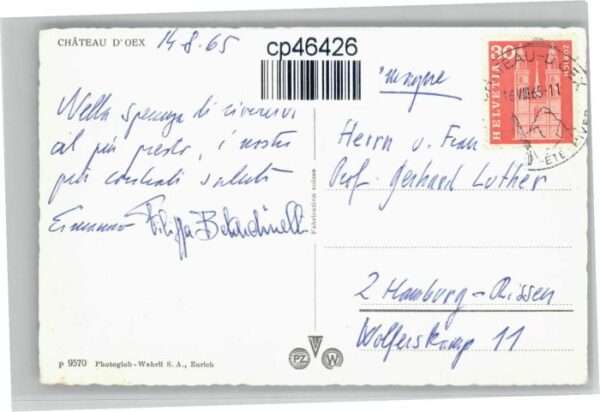 CHÂTEAU D'OEX 14-8-65
cp46426
Nella speranza di rivedervi
al più presto, i nostri
più cordiali saluti
Ermanno Filippa Belardinelli
P 9570 Photoglob-Wehrli S. A., Zurich
Fabrication suisse
PZ W
30
HELVETIA
16.VIII.65-11
Herrn u. Frau
Prof. Gerhard Luther
2 Hamburg-Rissen
Wolferskamp 11